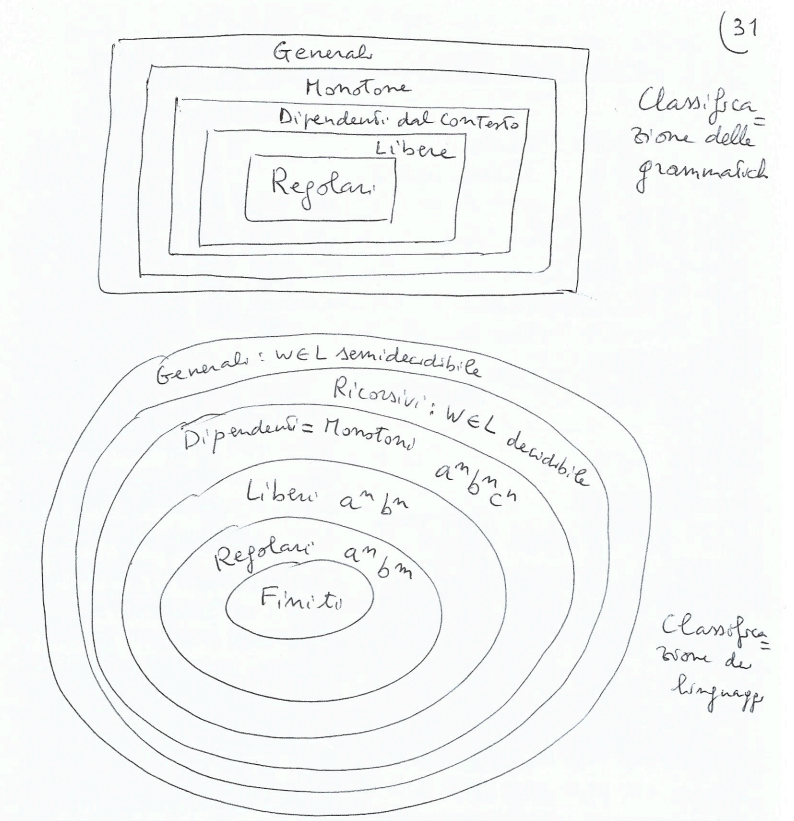 (31
Generali
Monotone
Dipendenti dal contesto
Libere
Regolari
Classifica=
zione delle
grammatich
Generali: W∈L semidecidibile
Ricorsivi: W∈L decidibile
Dipendenti = Monotoni
aⁿbⁿcⁿ
Liberi aⁿbⁿ
Regolari aⁿbᵐ
Finiti
Classifica=
zione dei
linguaggi